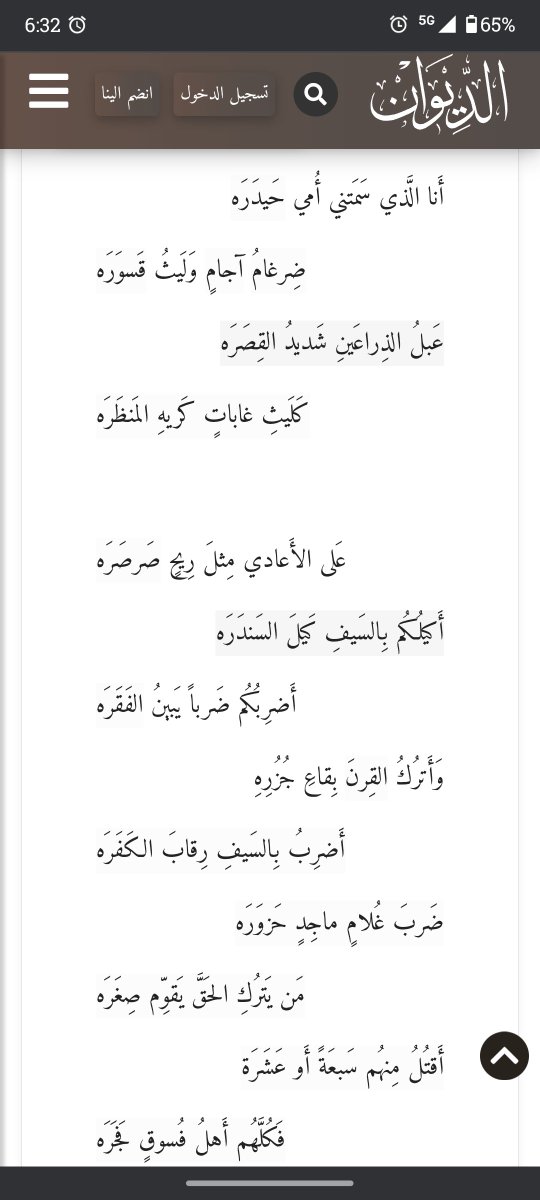 6:32
5G 65%
الدِّيوَان
تسجيل الدخول
انضم الينا
أَنا الَّذي سَمَتني أُمي حَيدَرَه
ضِرغامُ آجامٍ وَلَيثُ قَسوَرَه
عَبلُ الذِراعَينِ شَديدُ القِصَرَه
كَلَيثِ غاباتٍ كَريهِ المَنظَرَه
عَلى الأَعادي مِثلَ رِيحٍ صَرصَرَه
أَكيلُكُم بِالسَيفِ كَيلَ السَندَرَه
أَضرِبُكُم ضَرباً يَبينُ الفَقَرَه
وَأَترُكُ القِرنَ بِقاعِ جُزُرِهِ
أَضرِبُ بِالسَيفِ رِقابَ الكَفَرَه
ضَربَ غُلامٍ ماجِدٍ حَزوَرَه
مَن يَترُكِ الحَقَّ يَقوِّم صِغَرَه
أَقتُلُ مِنهُم سَبعَةً أَو عَشَرَة
فَكُلَّهُم أَهلُ فُسوقٍ فَجَرَه